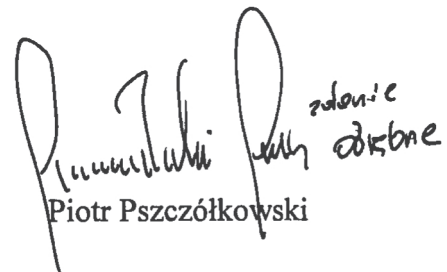 zdanie
odrębne
Piotr Pszczółkowski